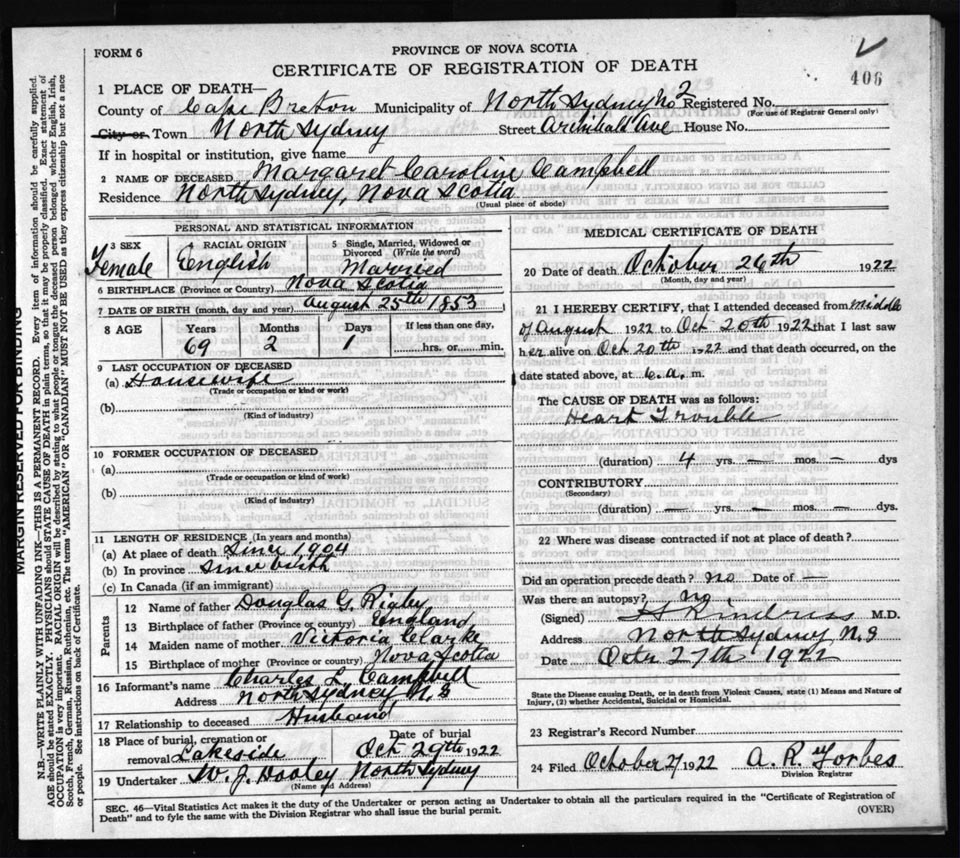 FORM 6
PROVINCE OF NOVA SCOTIA
CERTIFICATE OF REGISTRATION OF DEATH
406
1 PLACE OF DEATH—
County of Cape Breton Municipality of North Sydney No 2 Registered No.
(For use of Registrar General only)
City or Town North Sydney Street Archibald Ave House No.
If in hospital or institution, give name
2 NAME OF DECEASED Margaret Caroline Campbell
Residence North Sydney, Nova Scotia
(Usual place of abode)
PERSONAL AND STATISTICAL INFORMATION
3 SEX
Female
4 RACIAL ORIGIN
English
5 Single, Married, Widowed or
Divorced (Write the word)
Married
6 BIRTHPLACE (Province or Country) Nova Scotia
7 DATE OF BIRTH (month, day and year) August 25th 1853
8 AGE Years Months Days If less than one day,
69 2 1 hrs. or min.
9 LAST OCCUPATION OF DECEASED
(a) Housewife
(Trade or occupation or kind of work)
(b)
(Kind of industry)
10 FORMER OCCUPATION OF DECEASED
(a)
(Trade or occupation or kind of work)
(b)
(Kind of industry)
11 LENGTH OF RESIDENCE (In years and months)
(a) At place of death Since 1904
(b) In province Since birth
(c) In Canada (if an immigrant)
Parents
12 Name of father Douglas G. Rigby
13 Birthplace of father (Province or country) England
14 Maiden name of mother Victoria Clarke
15 Birthplace of mother (Province or country) Nova Scotia
16 Informant's name Charles L. Campbell
Address North Sydney N. S
17 Relationship to deceased Husband
18 Place of burial, cremation or Date of burial
removal Lakeside Oct 29th 1922
19 Undertaker W. J. Dooley North Sydney
(Name and Address)
MEDICAL CERTIFICATE OF DEATH
20 Date of death October 26th 1922
(Month, day and year)
21 I HEREBY CERTIFY, that I attended deceased from middle
of August 1922 to Oct 20th 1922 that I last saw
her alive on Oct 20th 1922 and that death occurred, on the
date stated above, at 6 a. m.
The CAUSE OF DEATH was as follows:
Heart Trouble
(duration) 4 yrs. — mos. — dys
CONTRIBUTORY
(Secondary)
(duration) — yrs. — mos. — dys.
22 Where was disease contracted if not at place of death?
Did an operation precede death? no Date of —
Was there an autopsy? no.
(Signed) M.D.
Address North Sydney N. S
Date Octr 27th 1922
State the Disease causing Death, or in death from Violent Causes, state (1) Means and Nature of
Injury, (2) whether Accidental, Suicidal or Homicidal.
23 Registrar's Record Number
24 Filed October 27 1922 A. R. Forbes
Division Registrar
SEC. 46—Vital Statistics Act makes it the duty of the Undertaker or person acting as Undertaker to obtain all the particulars required in the "Certificate of Registration of
Death" and to fyle the same with the Division Registrar who shall issue the burial permit.
(OVER)
MARGIN RESERVED FOR BINDING
N.B.—WRITE PLAINLY WITH UNFADING INK—THIS IS A PERMANENT RECORD. Every item of information should be carefully supplied.
AGE should be stated EXACTLY. PHYSICIANS should STATE CAUSE OF DEATH in plain terms, so that it may be properly classified. Exact statement of
OCCUPATION is very important. RACIAL ORIGIN will be described by stating to what people or tongue the deceased person belonged whether English, Irish,
Scotch, French, German, Russian, Ruthenian, etc. The terms "AMERICAN" OR "CANADIAN" MUST NOT BE USED as they express citizenship but not a race
or people. See instructions on back of Certificate.